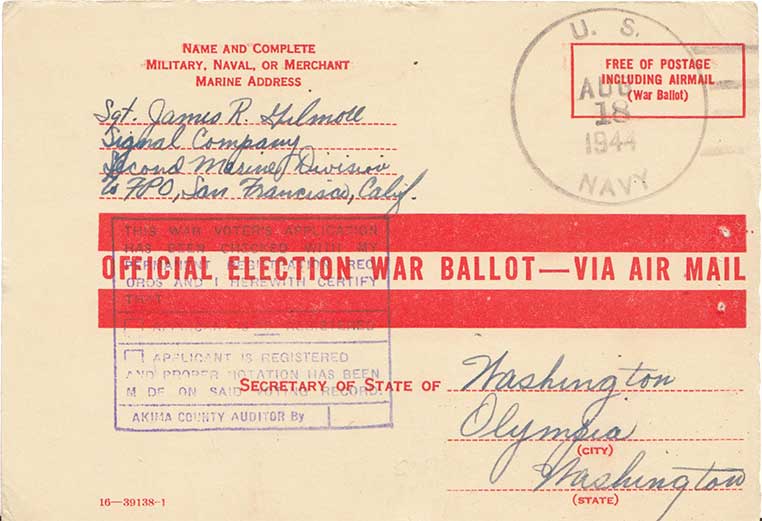 NAME AND COMPLETE
MILITARY, NAVAL, OR MERCHANT
MARINE ADDRESS
U. S.
AUG
18
1944
NAVY
FREE OF POSTAGE
INCLUDING AIRMAIL
(War Ballot)
Sgt. James R. Gilmore
Signal Company
Second Marine Division
℅ FPO, San Francisco, Calif.
THIS WAR VOTER'S APPLICATION
HAS BEEN CHECKED WITH MY
PERMANENT REGISTRATION REC
ORDS AND I HEREWITH CERTIFY
THAT
OFFICIAL ELECTION WAR BALLOT—VIA AIR MAIL
APPLICANT IS REGISTERED
AND PROPER NOTATION HAS BEEN
M DE ON SAID VOTING RECORD.
AKIMA COUNTY AUDITOR By
SECRETARY OF STATE OF Washington
Olympia
(CITY)
Washington
(STATE)
16—39138-1